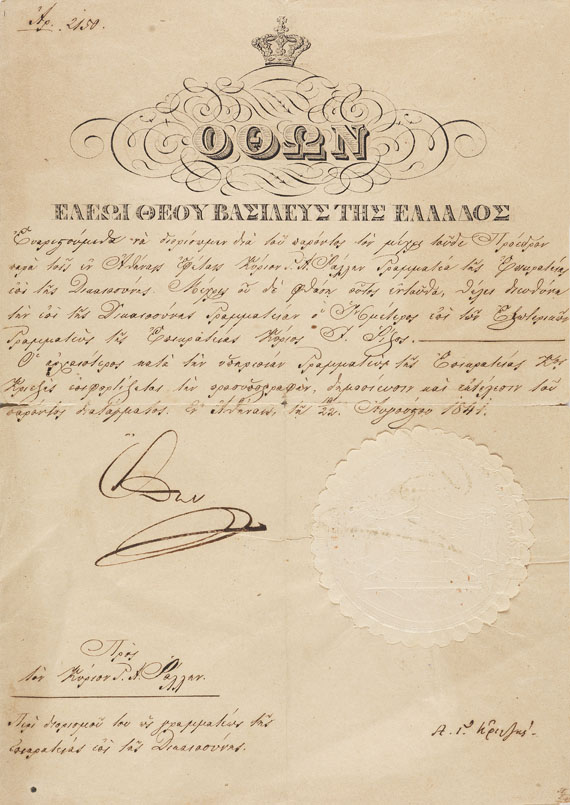 Ἀρ. 2150.
ΟΘΩΝ
ΕΛΕΩΙ ΘΕΟΥ ΒΑΣΙΛΕΥΣ ΤΗΣ ΕΛΛΑΔΟΣ
Εὐαρεστούμεθα νὰ διορίσωμεν διὰ τοῦ παρόντος τὸν μέχρι τοῦδε Πρόεδρον
παρὰ τοῖς ἐν Ἀθήναις Ἐφέταις Κύριον Γ. Α. Ῥάλλην Γραμματέα τῆς Ἐπικρατείας
ἐπὶ τῆς Δικαιοσύνης. Μέχρις οὗ δὲ φθάσῃ οὗτος ἐνταῦθα, θέλει διευθύνει
τὴν ἐπὶ τῆς Δικαιοσύνης Γραμματείαν ὁ Ἡμέτερος ἐπὶ τῶν Ἐξωτερικῶν
Γραμματεὺς τῆς Ἐπικρατείας Κύριος Ῥίζος.
Ὁ ἀρχαιότερος κατὰ τὴν ὑπηρεσίαν Γραμματεὺς τῆς Ἐπικρατείας Κος
Κριεζῆς ἐπιφορτίζεται τὴν προσυπογραφήν, δημοσίευσιν καὶ ἐκτέλεσιν τοῦ
παρόντος διατάγματος. Ἐν Ἀθήναις, τῇ 22 Αὐγούστου 1841.
Ὄθων
Πρὸς
τὸν Κύριον Γ. Α. Ῥάλλην.
Περὶ διορισμοῦ του ὡς γραμματέως τῆς
Ἐπικρατείας ἐπὶ τῆς Δικαιοσύνης.
Α. Γ. Κριεζῆς.